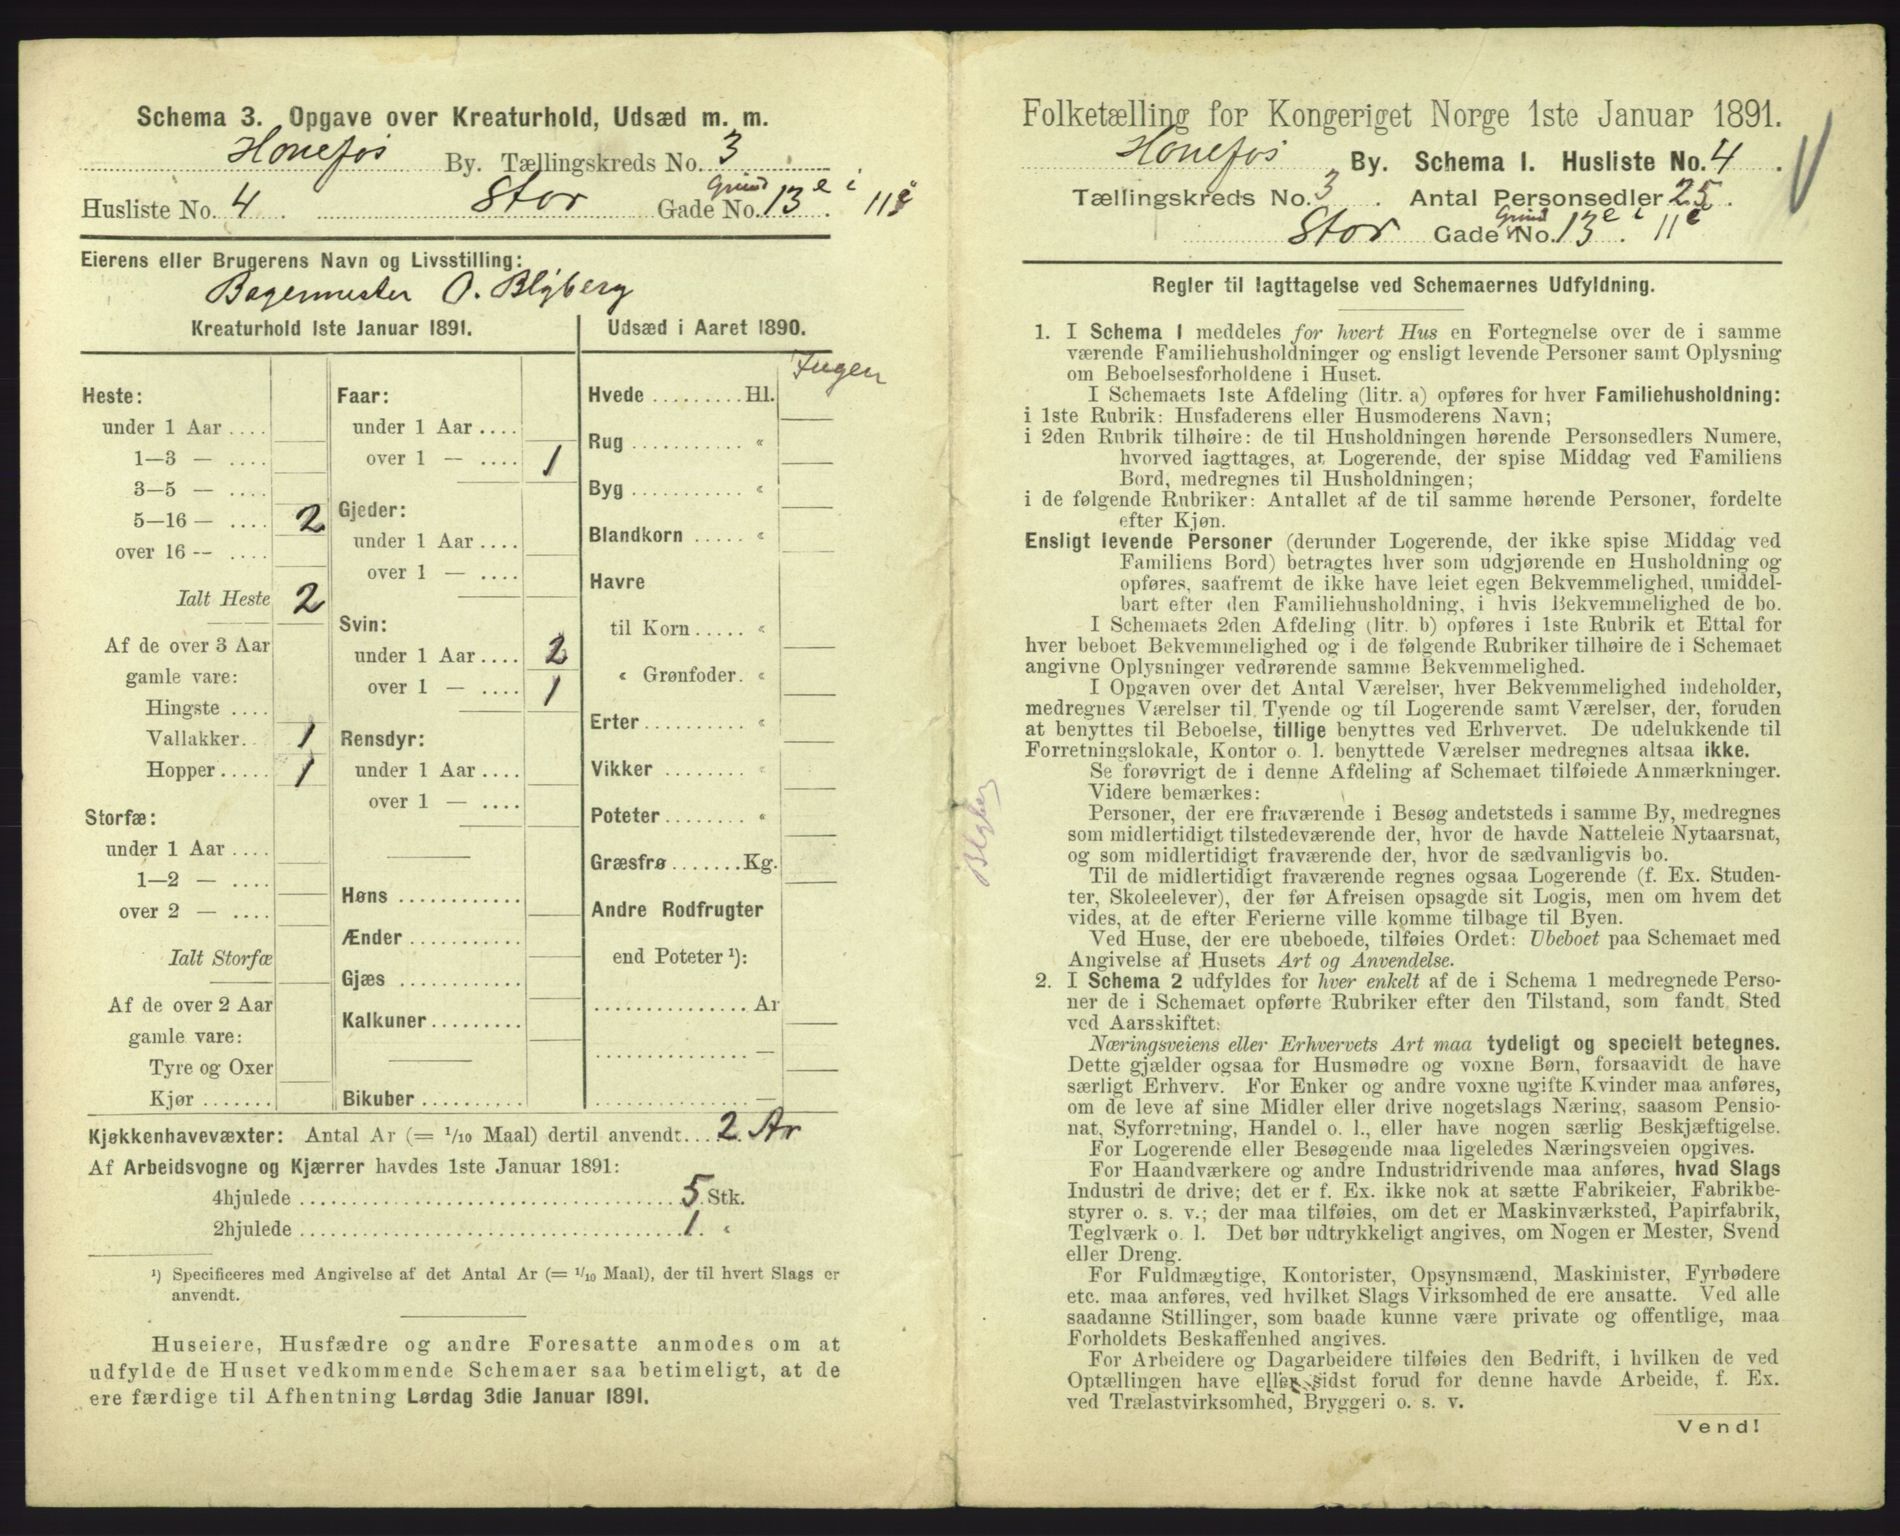 Schema 3. Opgave over Kreaturhold, Udsæd m. m.
Hønefos By. Tællingskreds No. 3
Husliste No. 4 Stor Gade Grund No. 13 e i 11
Eierens eller Brugerens Navn og Livsstilling:
Bagermester O. Blyberg
Kreaturhold 1ste Januar 1891.
Heste:
under 1 Aar ....
1—3 — ....
3—5 — ....
5—16 — .... 2
over 16 — ....
Ialt Heste 2
Af de over 3 Aar
gamle vare:
Hingste ....
Vallakker.. 1
Hopper ..... 1
Storfæ:
under 1 Aar ....
1—2 — ....
over 2 — ....
Ialt Storfæ
Af de over 2 Aar
gamle vare:
Tyre og Oxer
Kjør .......
Faar:
under 1 Aar ....
over 1 — .... 1
Gjeder:
under 1 Aar ....
over 1 — ....
Svin:
under 1 Aar .... 2
over 1 — .... 1
Rensdyr:
under 1 Aar ....
over 1 — ....
Høns ............
Ænder ...........
Gjæs ............
Kalkuner.........
Bikuber ..........
Udsæd i Aaret 1890.
Ingen
Hvede ......... Hl.
Rug ........... «
Byg ........... «
Blandkorn ..... «
Havre
til Korn ..... «
« Grønfoder. «
Erter .......... «
Vikker ........ «
Poteter ........ «
Græsfrø ....... Kg.
Andre Rodfrugter
end Poteter ¹):
............... Ar
............... —
............... —
Kjøkkenhavevæxter: Antal Ar (= 1/10 Maal) dertil anvendt.... 2 Ar
Af Arbeidsvogne og Kjærrer havdes 1ste Januar 1891:
4hjulede .................... 5 Stk.
2hjulede .................... 1 «
¹) Specificeres med Angivelse af det Antal Ar (= 1/10 Maal), der til hvert Slags er
anvendt.
Huseiere, Husfædre og andre Foresatte anmodes om at
udfylde de Huset vedkommende Schemaer saa betimeligt, at de
ere færdige til Afhentning Lørdag 3die Januar 1891.
Blyberg
Folketælling for Kongeriget Norge 1ste Januar 1891.
Hønefos By. Schema 1. Husliste No. 4
Tællingskreds No. 3. Antal Personsedler 25.
Stor Gade Grund No. 13 e i 11 e
Regler til Iagttagelse ved Schemaernes Udfyldning.
1. I Schema 1 meddeles for hvert Hus en Fortegnelse over de i samme
værende Familiehusholdninger og ensligt levende Personer samt Oplysning
om Beboelsesforholdene i Huset.
I Schemaets 1ste Afdeling (litr. a) opføres for hver Familiehusholdning:
i 1ste Rubrik: Husfaderens eller Husmoderens Navn;
i 2den Rubrik tilhøire: de til Husholdningen hørende Personsedlers Numere,
hvorved iagttages, at Logerende, der spise Middag ved Familiens
Bord, medregnes til Husholdningen;
i de følgende Rubriker: Antallet af de til samme hørende Personer, fordelte
efter Kjøn.
Ensligt levende Personer (derunder Logerende, der ikke spise Middag ved
Familiens Bord) betragtes hver som udgjørende en Husholdning og
opføres, saafremt de ikke have leiet egen Bekvemmelighed, umiddel-
bart efter den Familiehusholdning, i hvis Bekvemmelighed de bo.
I Schemaets 2den Afdeling (litr. b) opføres i 1ste Rubrik et Ettal for
hver beboet Bekvemmelighed og i de følgende Rubriker tilhøire de i Schemaet
angivne Oplysninger vedrørende samme Bekvemmelighed.
I Opgaven over det Antal Værelser, hver Bekvemmelighed indeholder,
medregnes Værelser til Tyende og til Logerende samt Værelser, der, foruden
at benyttes til Beboelse, tillige benyttes ved Erhvervet. De udelukkende til
Forretningslokale, Kontor o. l. benyttede Værelser medregnes altsaa ikke.
Se forøvrigt de i denne Afdeling af Schemaet tilføiede Anmærkninger.
Videre bemærkes:
Personer, der ere fraværende i Besøg andetsteds i samme By, medregnes
som midlertidigt tilstedeværende der, hvor de havde Natteleie Nytaarsnat,
og som midlertidigt fraværende der, hvor de sædvanligvis bo.
Til de midlertidigt fraværende regnes ogsaa Logerende (f. Ex. Studen-
ter, Skoleelever), der før Afreisen opsagde sit Logis, men om hvem det
vides, at de efter Ferierne ville komme tilbage til Byen.
Ved Huse, der ere ubeboede, tilføies Ordet: Ubeboet paa Schemaet med
Angivelse af Husets Art og Anvendelse.
2. I Schema 2 udfyldes for hver enkelt af de i Schema 1 medregnede Perso-
ner de i Schemaet opførte Rubriker efter den Tilstand, som fandt Sted
ved Aarsskiftet:
Næringsveiens eller Erhvervets Art maa tydeligt og specielt betegnes.
Dette gjælder ogsaa for Husmødre og voxne Børn, forsaavidt de have
særligt Erhverv. For Enker og andre voxne ugifte Kvinder maa anføres,
om de leve af sine Midler eller drive nogetslags Næring, saasom Pensio-
nat, Syforretning, Handel o. l., eller have nogen særlig Beskjæftigelse.
For Logerende eller Besøgende maa ligeledes Næringsveien opgives.
For Haandværkere og andre Industridrivende maa anføres, hvad Slags
Industri de drive; det er f. Ex. ikke nok at sætte Fabrikeier, Fabrikbe-
styrer o. s. v.; der maa tilføies, om det er Maskinværksted, Papirfabrik,
Teglværk o. l. Det bør udtrykkeligt angives, om Nogen er Mester, Svend
eller Dreng.
For Fuldmægtige, Kontorister, Opsynsmænd, Maskinister, Fyrbødere
etc. maa anføres, ved hvilket Slags Virksomhed de ere ansatte. Ved alle
saadanne Stillinger, som baade kunne være private og offentlige, maa
Forholdets Beskaffenhed angives.
For Arbeidere og Dagarbeidere tilføies den Bedrift, i hvilken de ved
Optællingen have eller sidst forud for denne havde Arbeide, f. Ex.
ved Trælastvirksomhed, Bryggeri o. s. v.
Vend!